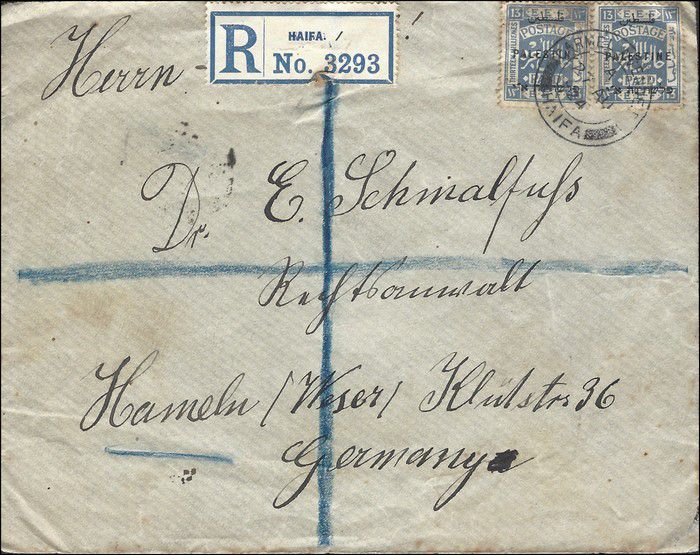 R
HAIFA. /
No. 3293
13 E.E.F. 13
POSTAGE
PALESTINE
PAID
13 E.E.F. 13
POSTAGE
PALESTINE
PAID
HAIFA
Herrn
Dr. E. Schmalfuss
Rechtsanwalt
Hameln /Weser/ Klütstr 36
Germany